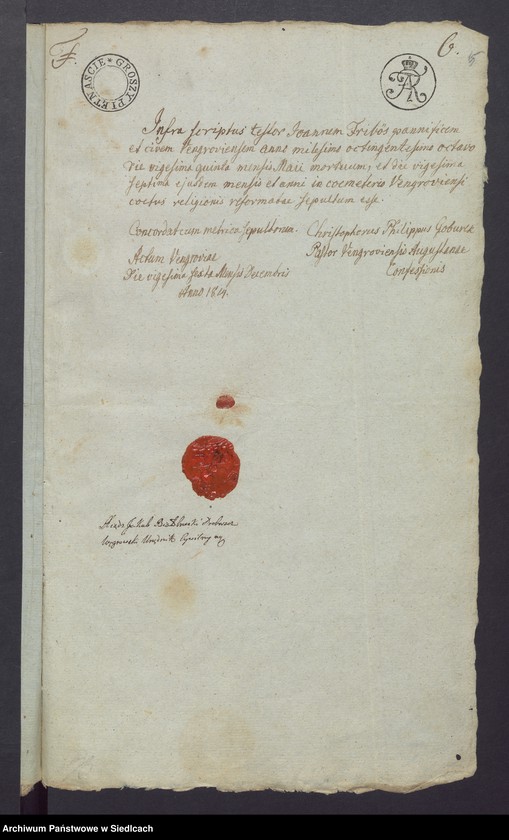 F.
GROSZY PIĘTNAŚCIE
6.
5
Infra scriptus testor Joannem Tribös pannificem
et civem Vengroviensem anno milesimo octingentesimo octavo
die vigesima quinta mensis Maii mortuum, et die vigesima
septima ejusdem mensis et anni in coemeterio Vengroviensi
coetus religionis reformatae sepultum esse.
Concordat cum metrica sepultorum.
Christophorus Philippus Goburek
Pastor Vengroviensis Augustanae
Confessionis
Actum Vengroviae
Die vigesima sexta Mensis Decembris
Anno 1814.
Xiądz Jakub Proboszcz
Węgrowski Urzędnik Cywilny
Archiwum Państwowe w Siedlcach